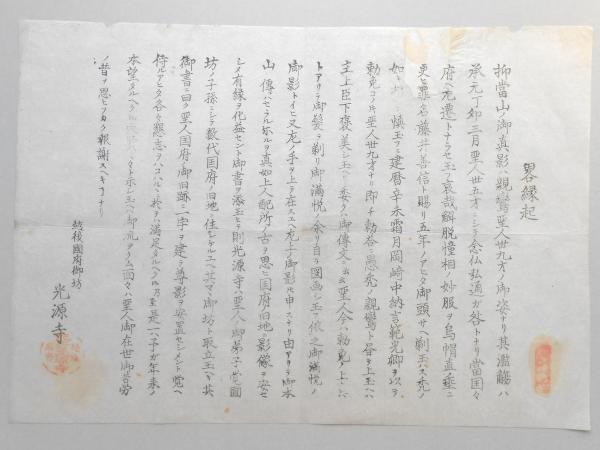 畧縁起
抑當山ノ御真影ハ親鸞聖人丗九才ノ御姿ナリ其濫觴ハ
承元丁卯三月聖人丗五才ニシテ念仏弘通ガ咎トナリ當國々
府ヘ左遷トナラセ玉ヒ哀哉解脱幢相ノ妙服ヲ烏帽直垂ニ
更ヒ罪名藤井善信ト賜リ五年ノアヒタ御頭サヘ剃玉ハス禿ノ
如ニ慎玉フニ建暦辛未霜月岡崎中納言範光卿ヲ以テ
勅免コノ片聖人丗九才ナリ即チ勅答ニ愚禿ノ親鸞ト書上玉ヘハ
主上臣下褒美シ玉ヘリ委クハ御傳文ニ出ス聖人今ハ勅免ノ上ハ
トアリテ御髪ヲ剃リ御満悦ノ余リ自ラ図画シ玉フ依之御満悦ノ
御影トイヒ又左ノ手ヲ上ニ在スユヘ左上ノ御影トモ申スナリ由アリテ御本
山ニ傳ハセラレ尓ルヲ真如上人配所ノ古ヲ思ヒ国府ノ旧地ニ影像ヲ安セ
シメ有縁ヲ化益セント御書ヲ添玉ヒテ則光源寺ハ聖人ノ御弟子覚圓
坊ノ子孫ニシテ数代国府ノ旧地ニ住シケルユヘ其マヽ御坊ニ取立玉ヘリ其
御書ニ曰ク聖人国府ノ御旧跡ニ一宇ヲ建テ尊影ヲ安置セシメント覚ヘ
侍ルアヒタ各々懇志ヲハコハルヽニ於ヲ満足タルヘク乃至是一ハ予ガ年来ノ
本望タルヘク 御流ヲクム面々ハ聖人御在世御苦労
ノ昔ヲ思ヒフカク報謝スヘキモノナリ
越後國府御坊
光源寺